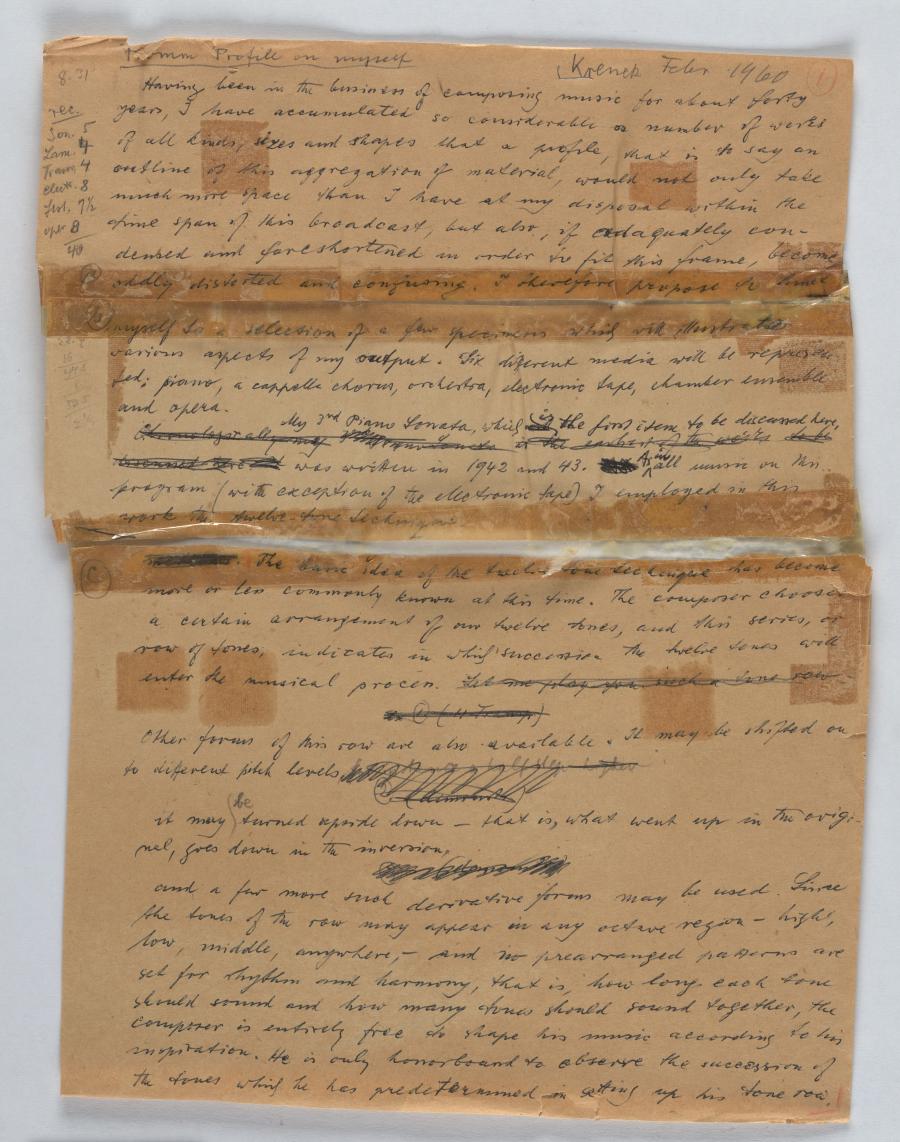 Profile on myself
Krenek Febr. 1960
1
8.31
rec.
Son. 5
Lam. 4
Trans. 4
electr. 8
7½
8
40
Having been in the business of composing music for about forty
years, I have accumulated so considerable a number of works
of all kinds, sizes and shapes that a profile, that is to say an
outline of this aggregation of material, would not only take
much more space than I have at my disposal within the
time span of this broadcast, but also, if adaquately con-
densed and foreshortened in order to fit this frame, become
oddly distorted and confusing. I therefore propose to limit
myself to a selection of a few specimens which will illustrate
various aspects of my output. Six different media will be represen-
ted; piano, a cappella chorus, orchestra, electronic tape, chamber ensemble
and opera.
My 3rd Piano Sonata, which is the first item to be discussed here,
was written in 1942 and 43. As in all music on this
program (with exception of the electronic tape) I employed in this
work the twelve-tone technique
C
The basic idea of the twelve-tone technique has become
more or less commonly known at this time. The composer chooses
a certain arrangement of our twelve tones, and this series, or
row of tones, indicates in which succession the twelve tones will
enter the musical process. Let me play you such a tone row
Other forms of this row are also available. It may be shifted on
to different pitch levels
it may be turned upside down – that is, what went up in the origi-
nal, goes down in the inversion,
and a few more such derivative forms may be used. Since
the tones of the row may appear in any octave region – high,
low, middle, anywhere, – and no prearranged patterns are
set for rhythm and harmony, that is, how long each tone
should sound and how many tones should sound together, the
composer is entirely free to shape his music according to his
inspiration. He is only honorbound to observe the succession of
the tones which he has predetermined in setting up his tone row.